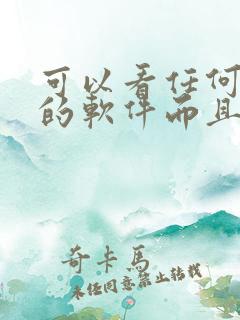 可以看任何
的軟件而且
奇卡馬
未经同意禁止转载